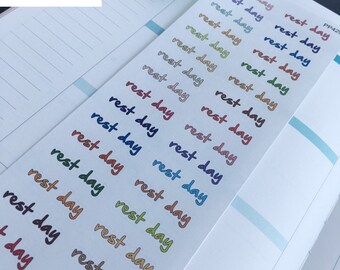 rest day rest day
rest day rest day
rest day rest day
rest day rest day
rest day rest day
rest day rest day
rest day rest day
rest day rest day
rest day rest day
rest day rest day
rest day rest day
rest day rest day
rest day rest day